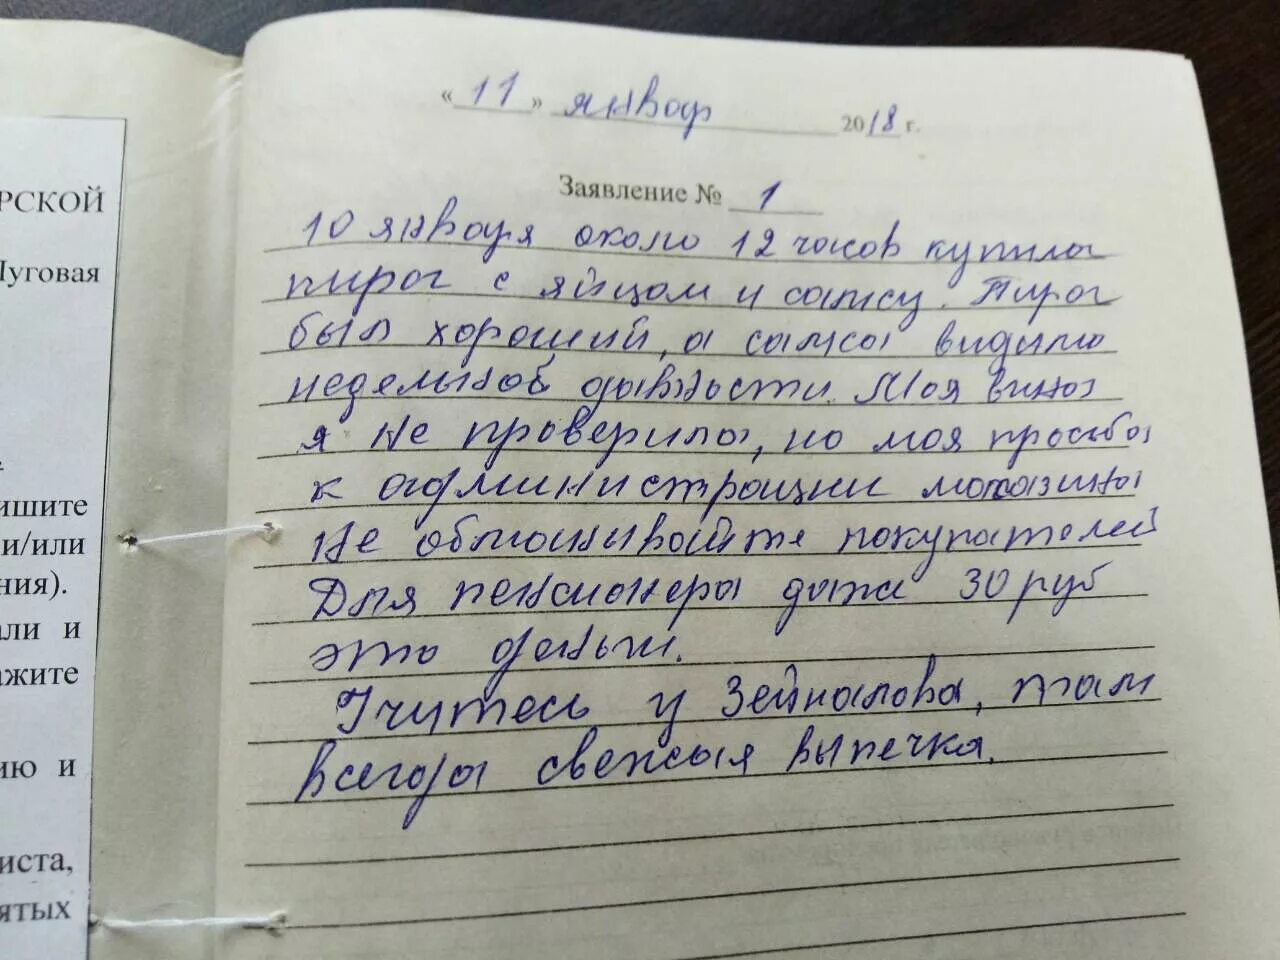 РСКОЙ
Луговая
ишите
и/или
ния).
али и
ажите
ию и
иста,
ятых
«11» январ 2018 г.
Заявление № 1
10 января около 12 часов купила
пирог с яйцом и самсу. Пирог
был хороший, а самса видимо
недельной давности. Моя вина
я не проверила, но моя просьба
к администрации магазина
Не обманывайте покупателей
Для пенсионера даже 30 руб
это деньги.
Учитесь у Зейналова, там
всегда свежая выпечка.